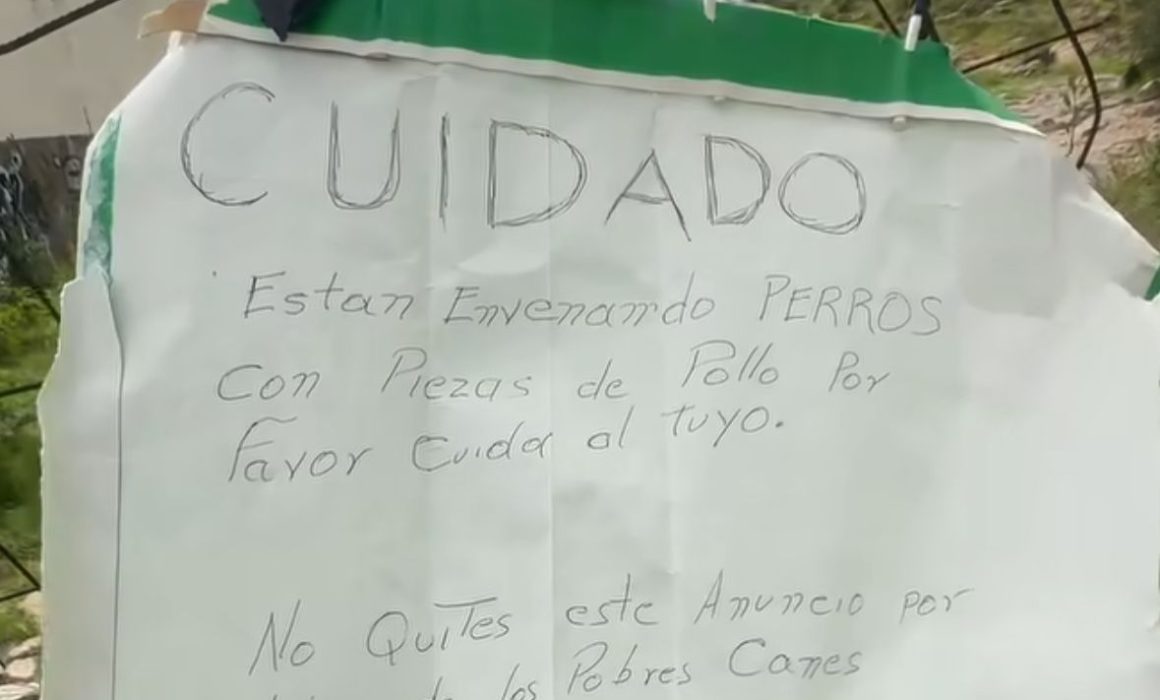 CUIDADO
Estan Envenando PERROS
Con Piezas de Pollo Por
Favor Cuida al tuyo.
No QuiTes este Anuncio por
los Pobres Canes